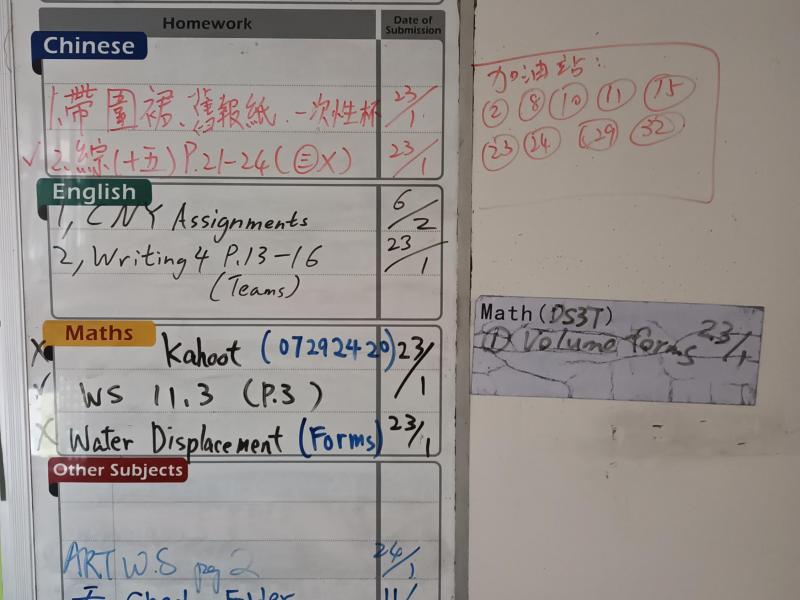 Homework
Date of Submission
Chinese
1.帶圍裙、舊報紙、一次性杯 23/1
✓ 2.綜(十五) P.21-24 (㊂X) 23/1
English
1, CNY Assignments 6/2
2, Writing 4 P.13-16 23/1
(Teams)
Maths
X Kahoot (07292420) 23/1
✓ WS 11.3 (P.3)
X Water Displacement (Forms) 23/1
Other Subjects
ART W.S pg 2 24/1
加油站:
② ⑧ ⑩ ⑪ ⑮
㉓ ㉔ ㉙ ㉜
Math (DS3T)
① Volume forms 23/1